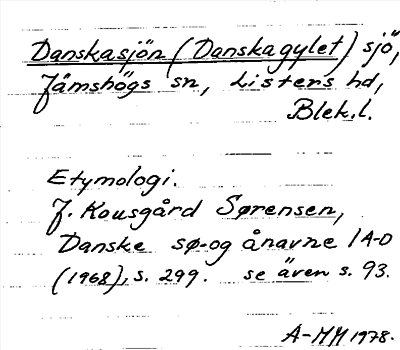 Danskasjön (Danskagylet) sjö,
Jämshögs sn, Listers hd,
Blek.l.
Etymologi.
J. Kousgård Sørensen,
Danske sø- og ånavne 1 A-D
(1968), s. 299. se även s. 93.
A-MM 1978.